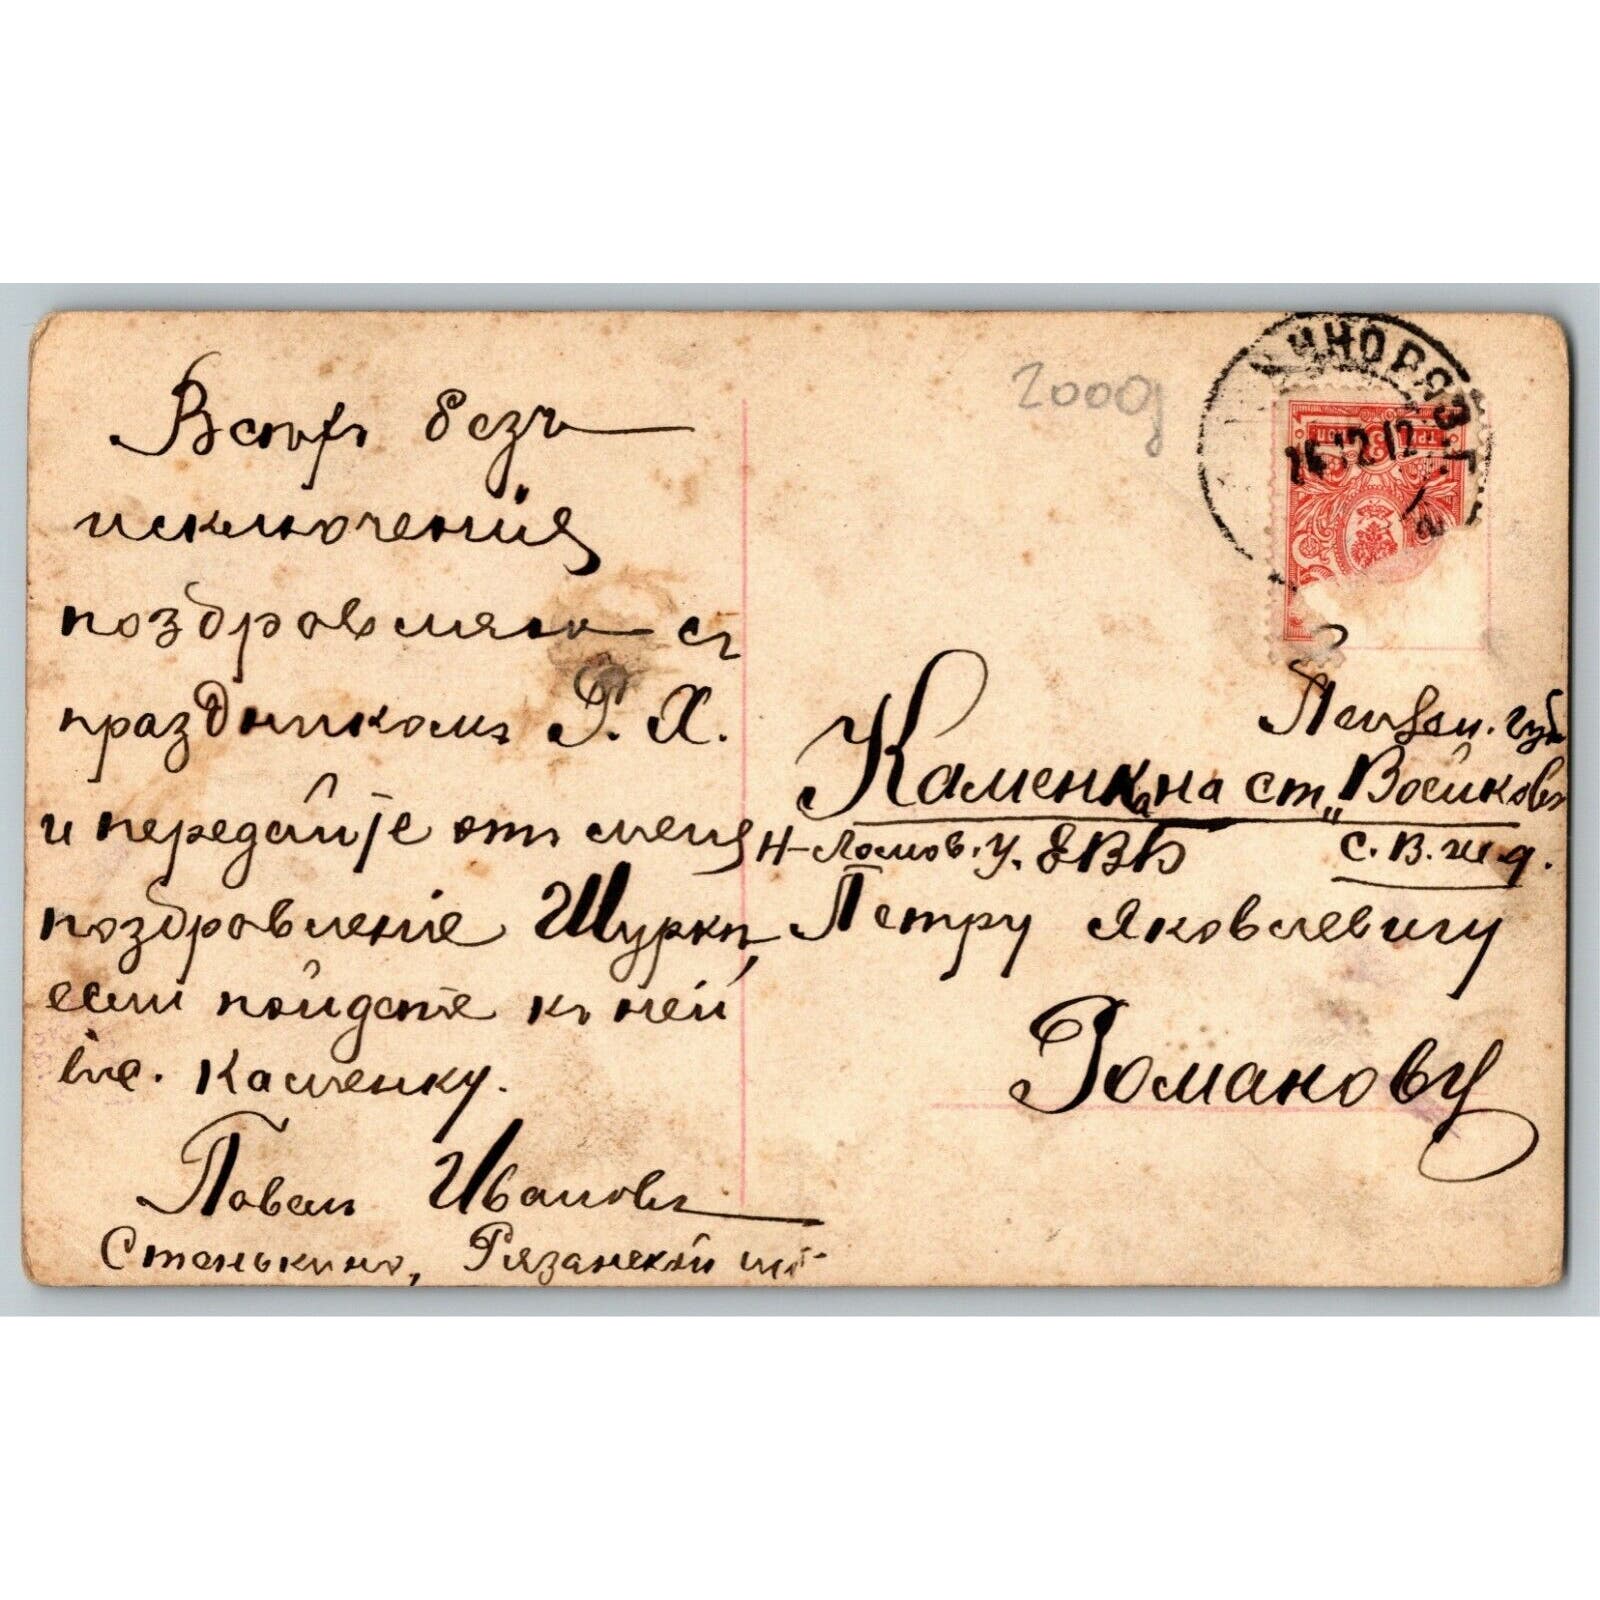 Всѣхъ безъ
исключенія
поздравляю съ
праздникомъ Р. Х.
и передайте отъ меня
поздравленіе Шуркѣ,
если пойдете къ ней
въ с. Каменку.
Павелъ Ивановъ
Стенькино, Рязанской
2000
24 12 12
Пензен. губ
Каменка на ст „Воейково
Н-Ломов. у. ЕВБ С. В. ж д.
Петру Яковлевичу
Романову